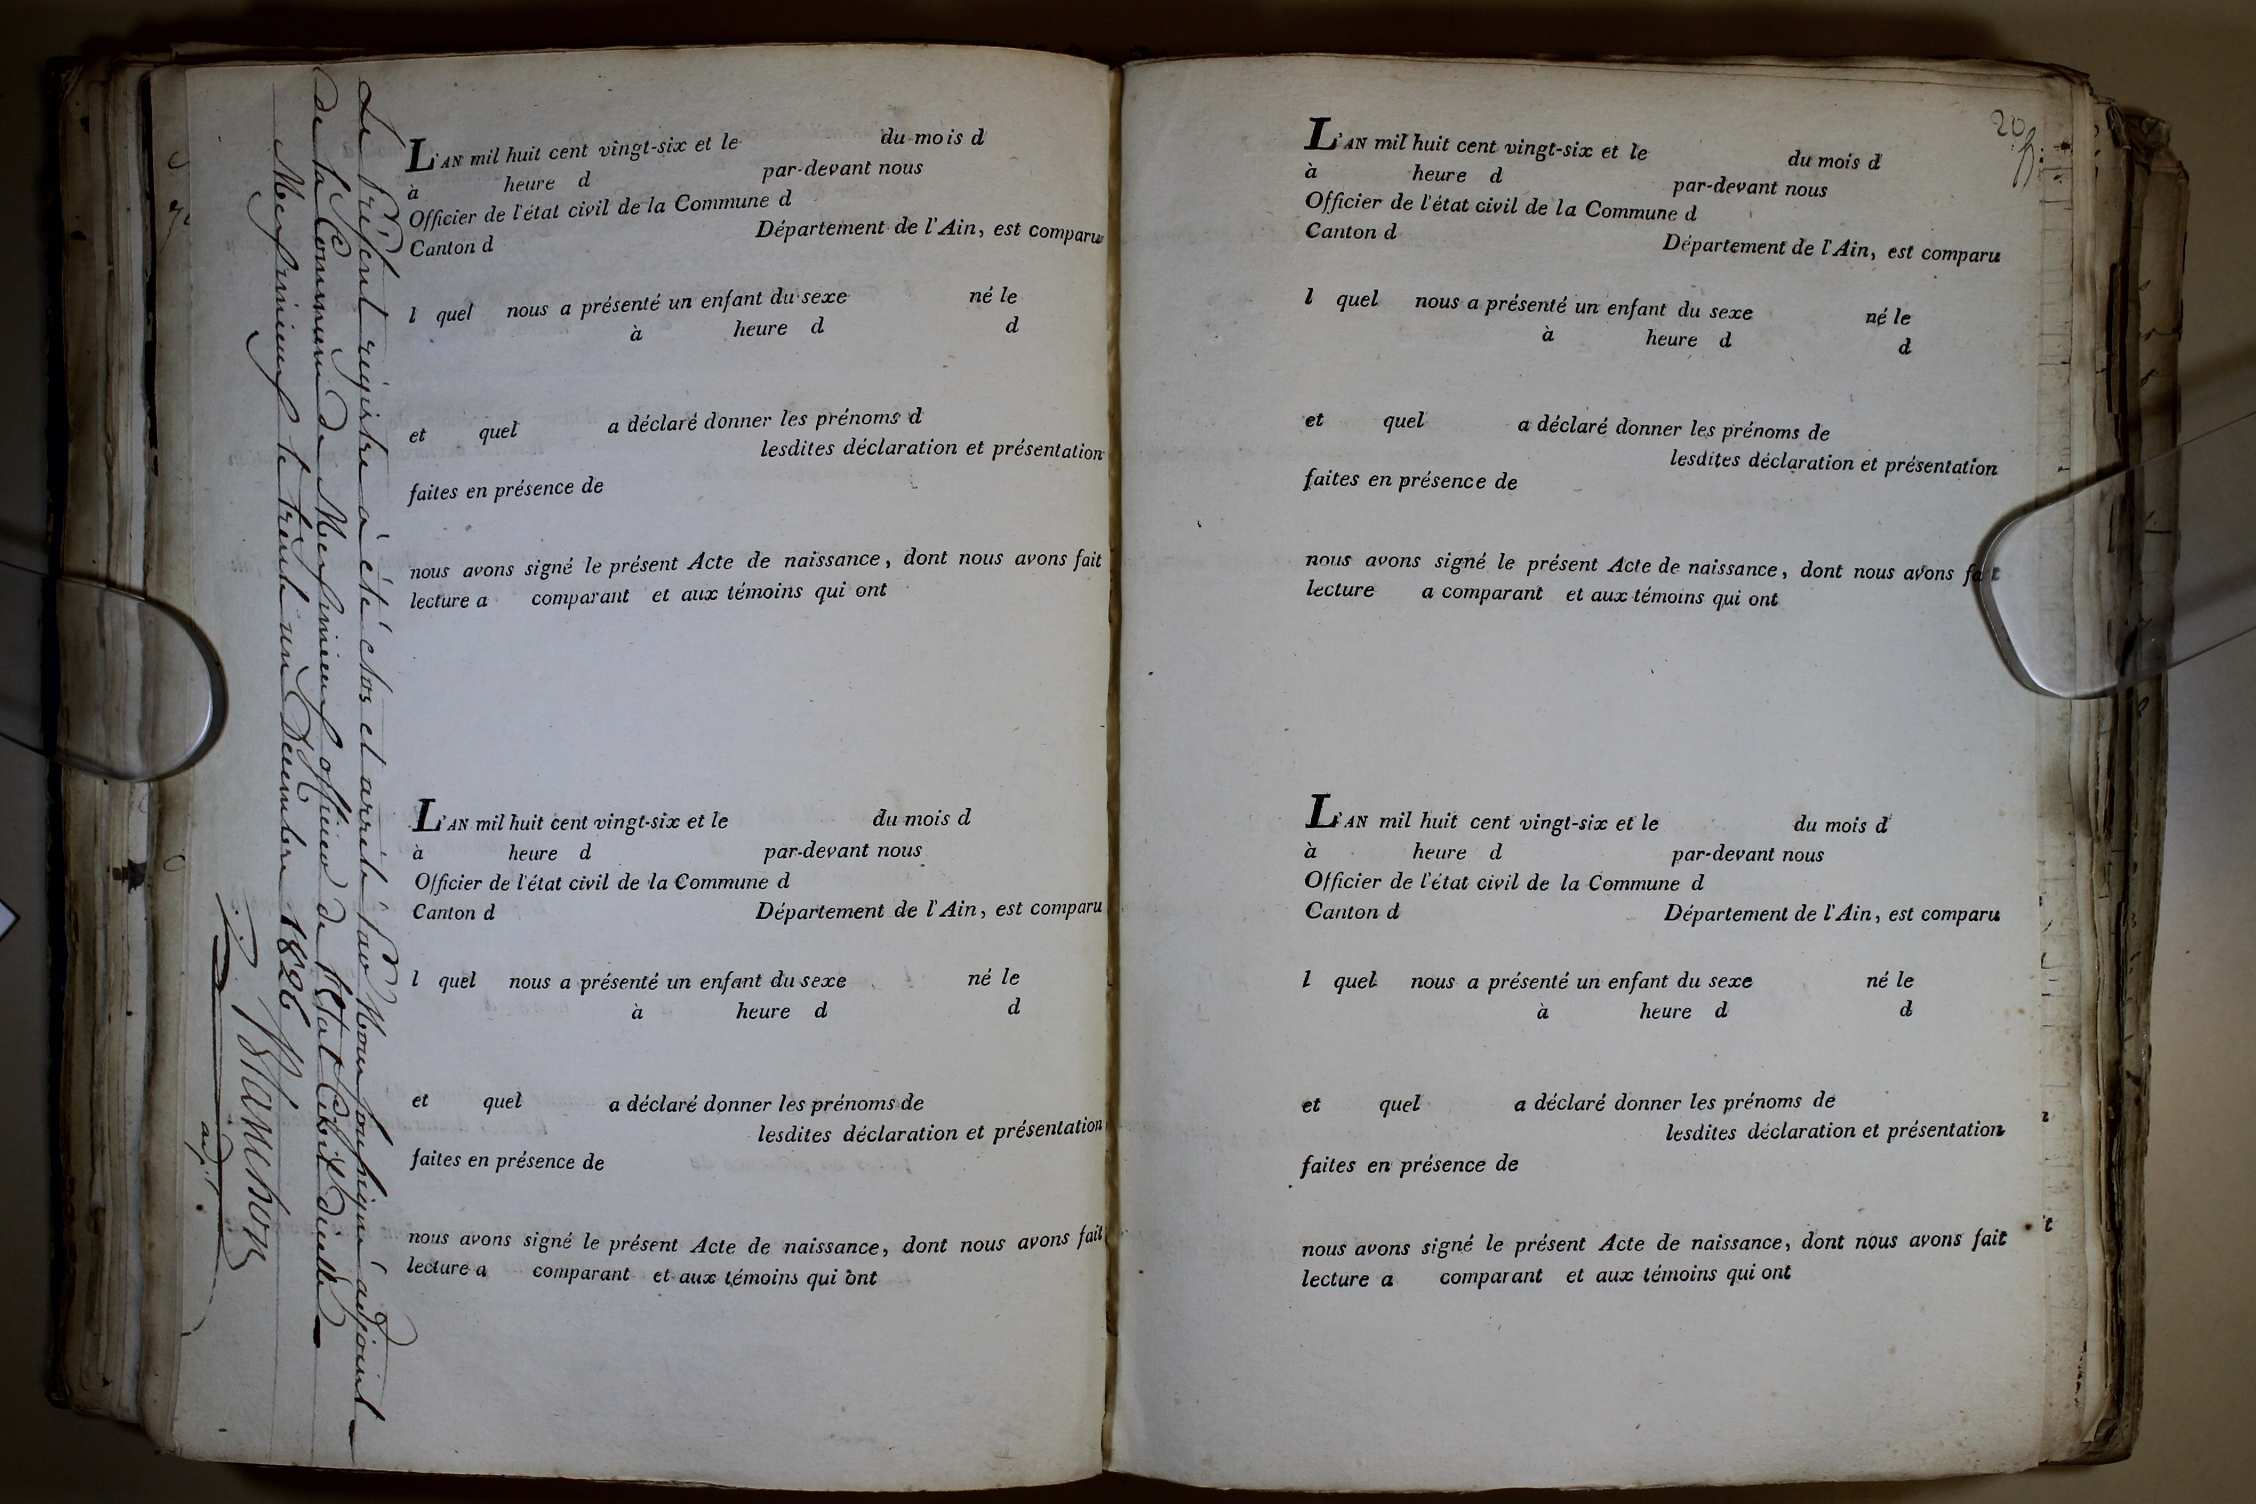 Le présent registre a été clos et arrêté par Nous soussigné adjoint
de la Commune de Messimieux officier de l'Etat Civil dudit
Messimieux le trente un Decembre 1826
Blanchon
adj.t
L'AN mil huit cent vingt-six et le du mois d
à heure d par-devant nous
Officier de l'état civil de la Commune d
Canton d Département de l'Ain, est comparu
l quel nous a présenté un enfant du sexe né le
à heure d d
et quel a déclaré donner les prénoms d
lesdites déclaration et présentation
faites en présence de
nous avons signé le présent Acte de naissance, dont nous avons fait
lecture a comparant et aux témoins qui ont
L'AN mil huit cent vingt-six et le du mois d
à heure d par-devant nous
Officier de l'état civil de la Commune d
Canton d Département de l'Ain, est comparu
l quel nous a présenté un enfant du sexe né le
à heure d d
et quel a déclaré donner les prénoms de
lesdites déclaration et présentation
faites en présence de
nous avons signé le présent Acte de naissance, dont nous avons fait
lecture a comparant et aux témoins qui ont
20
L'AN mil huit cent vingt-six et le du mois d
à heure d par-devant nous
Officier de l'état civil de la Commune d
Canton d Département de l'Ain, est comparu
l quel nous a présenté un enfant du sexe né le
à heure d d
et quel a déclaré donner les prénoms de
lesdites déclaration et présentation
faites en présence de
nous avons signé le présent Acte de naissance, dont nous avons fait
lecture a comparant et aux témoins qui ont
L'AN mil huit cent vingt-six et le du mois d
à heure d par-devant nous
Officier de l'état civil de la Commune d
Canton d Département de l'Ain, est comparu
l quel nous a présenté un enfant du sexe né le
à heure d d
et quel a déclaré donner les prénoms de
lesdites déclaration et présentation
faites en présence de
nous avons signé le présent Acte de naissance, dont nous avons fait
lecture a comparant et aux témoins qui ont